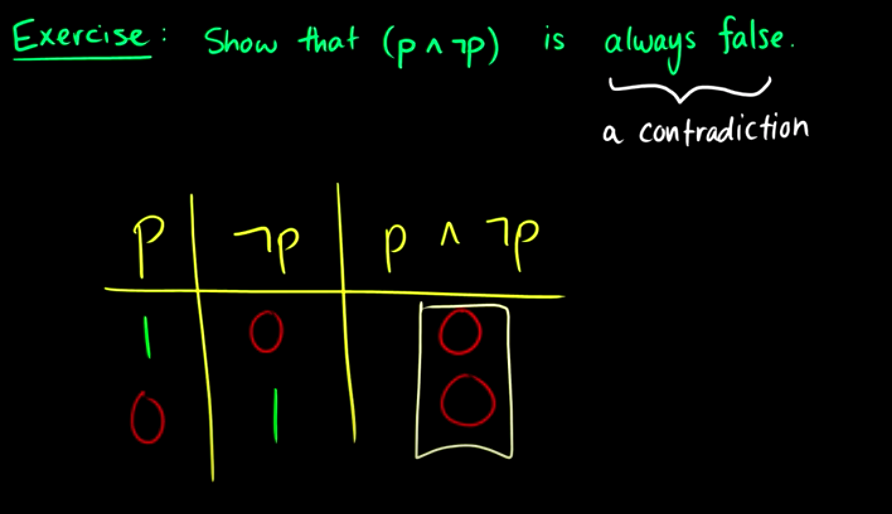 Exercise: Show that (p ∧ ¬p) is always false.
a contradiction
p ¬p p ∧ ¬p
1 0 0
0 1 0